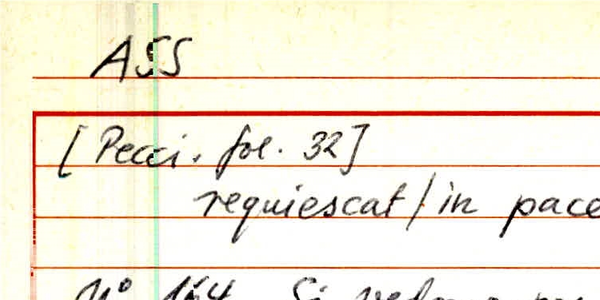 ASS
[Pecci. fol. 32]
requiescat/in pace
N° 164. Si